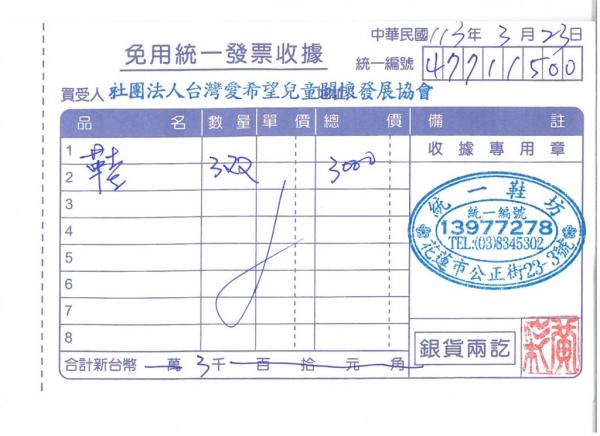 中華民國 113年 3月 23日
免用統一發票收據
統一編號 47711500
買受人 社團法人台灣愛希望兒童關懷發展協會
品名 數量 單價 總價 備註
1 收據專用章
2 鞋 3双 3000
3
4
5
6
7
8
統一鞋坊
統一編號
13977278
TEL:(03)8345302
花蓮市公正街23-3號
銀貨兩訖
合計新台幣 萬 3千 百 拾 元 角